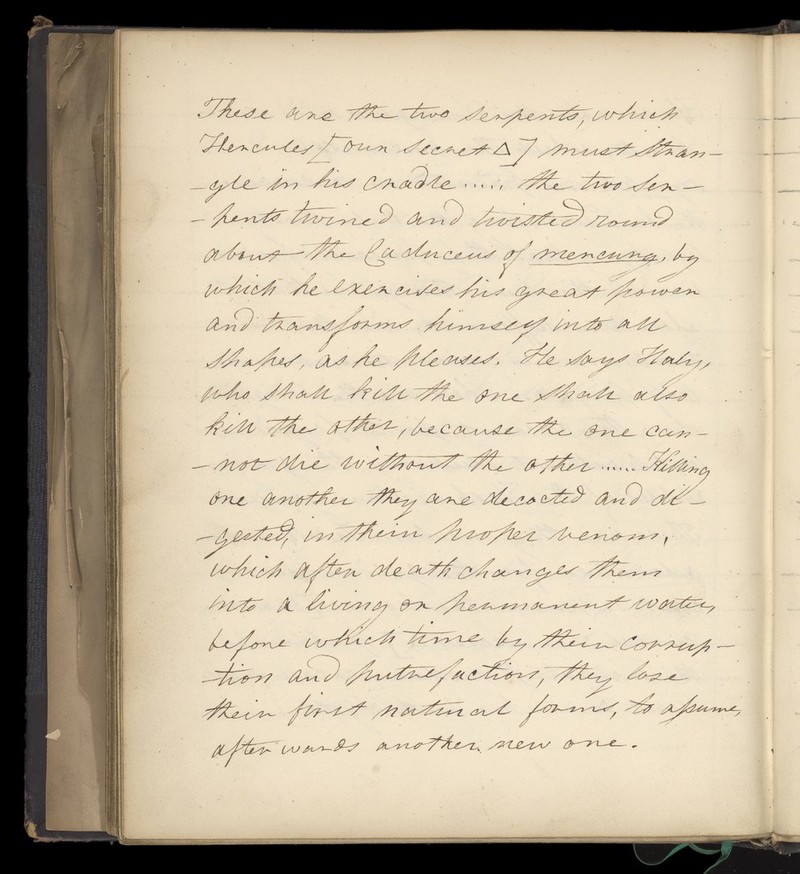 These are the two serpents, which
Hercules [our secret △] must stran-
-gle in his cradle ..... the two ser-
-pents twined and twisted round
about the Caduceus of mercury, by
which he exercises his great power
and transforms himself into all
shapes, as he pleases. He says Haly,
who shall kill the one shall also
kill the other, because the one can-
-not die without the other ...... Killing
one another they are decocted and di-
-gested, in their proper venom,
which after death changes them
into a living or permanent water,
before which time by their corrup-
-tion and putrefaction, they lose
their first natural forms, to aſsume,
afterwards another new one.